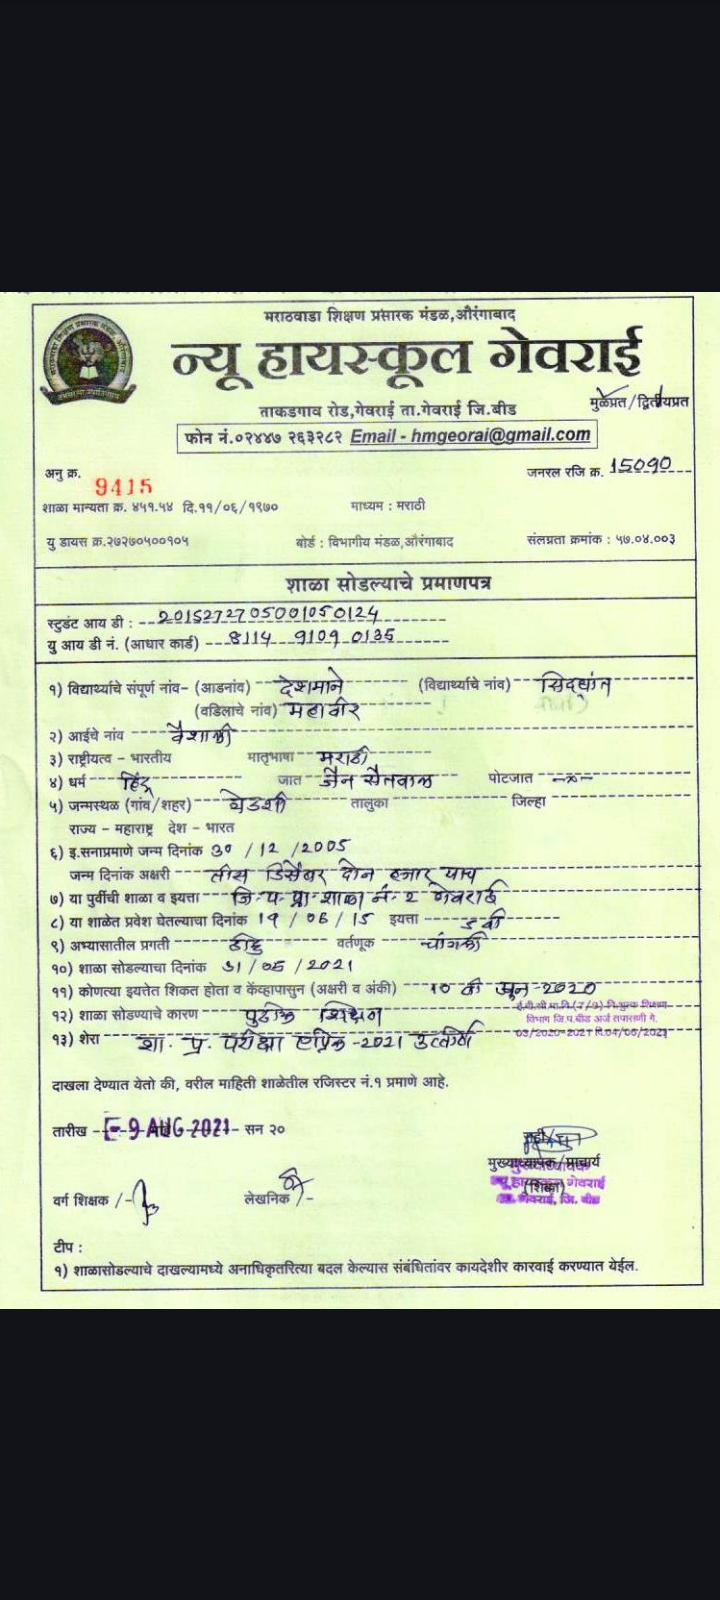 मराठवाडा शिक्षण प्रसारक मंडळ,औरंगाबाद
न्यू हायस्कूल गेवराई
ताकडगाव रोड,गेवराई ता.गेवराई जि.बीड
मुळप्रत/द्वितीयप्रत
फोन नं.०२४४७ २६३२८२ Email - hmgeorai@gmail.com
अनु क्र. 9415
जनरल रजि क्र. 15090
शाळा मान्यता क्र. ४५१.५४ दि.११/०६/१९७० माध्यम : मराठी
यु डायस क्र.२७२७०५००१०५ बोर्ड : विभागीय मंडळ,औरंगाबाद संलग्नता क्रमांक : ५७.०४.००३
शाळा सोडल्याचे प्रमाणपत्र
स्टुडंट आय डी : 2015272705001050124
यु आय डी नं. (आधार कार्ड) 8114 9109 0135
१) विद्यार्थ्याचे संपूर्ण नांव- (आडनांव) देशमाने (विद्यार्थ्याचे नांव) सिद्धांत
(वडिलाचे नांव) महावीर
२) आईचे नांव वैशाली
३) राष्ट्रीयत्व - भारतीय मातृभाषा मराठी
४) धर्म हिंदू जात जैन सैतवाळ पोटजात -x-
५) जन्मस्थळ (गांव/शहर) येडशी तालुका जिल्हा
राज्य - महाराष्ट्र देश - भारत
६) इ.सनाप्रमाणे जन्म दिनांक 30 / 12 / 2005
जन्म दिनांक अक्षरी तीस डिसेंबर दोन हजार पाच
७) या पूर्वीची शाळा व इयत्ता जि.प.प्रा.शाळा नं.२ गेवराई
८) या शाळेत प्रवेश घेतल्याचा दिनांक 19 / 06 / 15 इयत्ता 5 वी
९) अभ्यासातील प्रगती ठीक वर्तणूक चांगली
१०) शाळा सोडल्याचा दिनांक 31 / 05 / 2021
११) कोणत्या इयत्तेत शिकत होता व केंव्हापासुन (अक्षरी व अंकी) 10 वी जून-2020
१२) शाळा सोडण्याचे कारण पुढील शिक्षण
१३) शेरा शा. प्र. परीक्षा एप्रिल-2021 उत्तीर्ण
दाखला देण्यात येतो की, वरील माहिती शाळेतील रजिस्टर नं.१ प्रमाणे आहे.
तारीख - 9 AUG 2021 - सन २०
मुख्याध्यापक/प्राचार्य
न्यू हायस्कूल गेवराई
(शिक्का)
ता. गेवराई, जि. बीड
वर्ग शिक्षक /- लेखनिक /-
टीप :
१) शाळासोडल्याचे दाखल्यामध्ये अनाधिकृतरित्या बदल केल्यास संबंधितांवर कायदेशीर कारवाई करण्यात येईल.